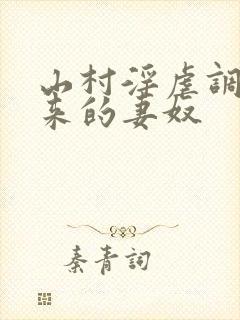 山村淫虐調
来的妻奴
秦青詞